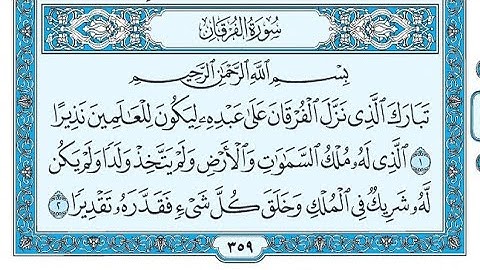 سُورَةُ الْفُرْقَانِ
بِسْمِ اللَّهِ الرَّحْمَٰنِ الرَّحِيمِ
تَبَارَكَ الَّذِي نَزَّلَ الْفُرْقَانَ عَلَىٰ عَبْدِهِ لِيَكُونَ لِلْعَالَمِينَ نَذِيرًا
١ الَّذِي لَهُ مُلْكُ السَّمَٰوَٰتِ وَالْأَرْضِ وَلَمْ يَتَّخِذْ وَلَدًا وَلَمْ يَكُن
لَّهُ شَرِيكٌ فِي الْمُلْكِ وَخَلَقَ كُلَّ شَيْءٍ فَقَدَّرَهُ تَقْدِيرًا ٢
٣٥٩